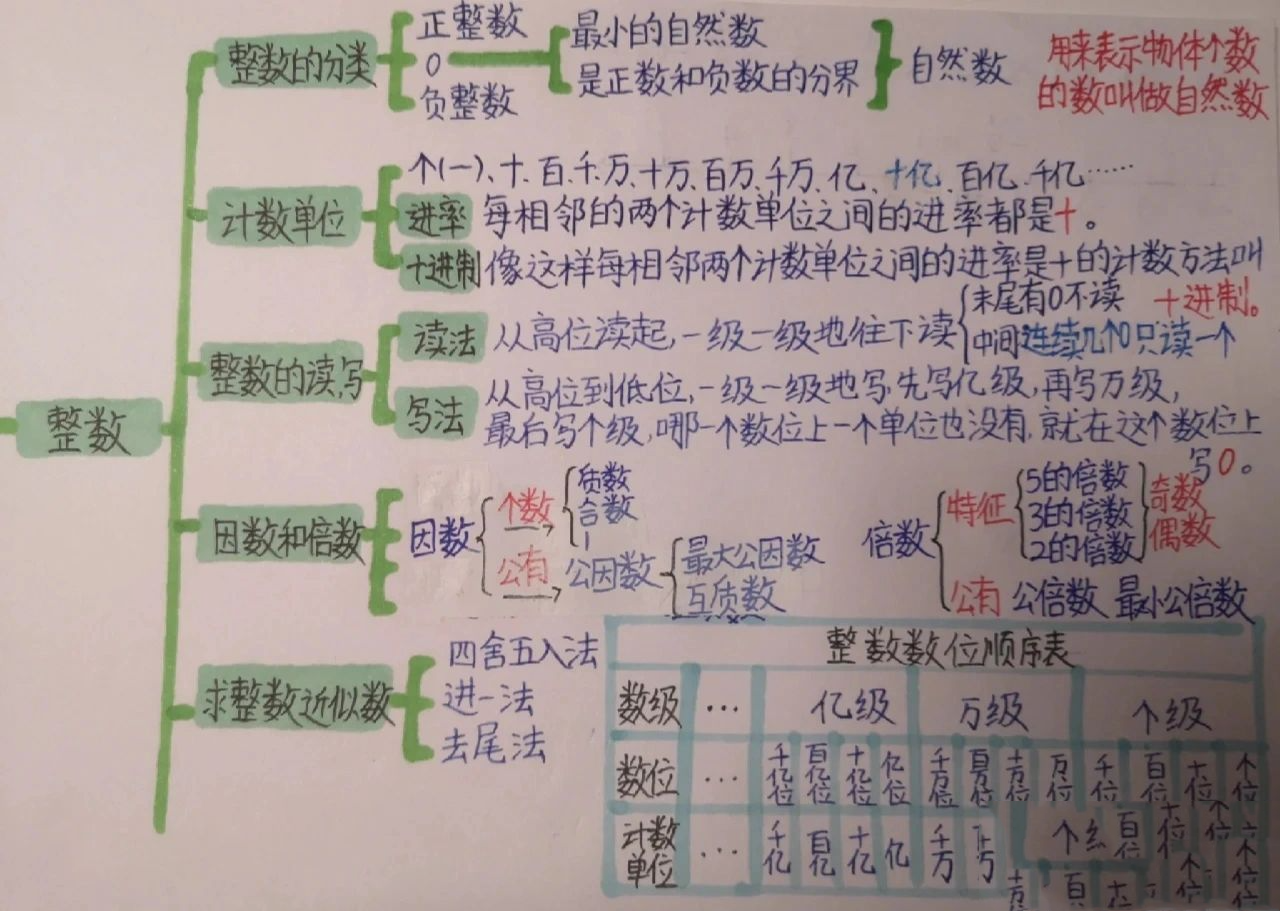 整数
整数的分类
正整数
0
负整数
最小的自然数
是正数和负数的分界
自然数
用来表示物体个数
的数叫做自然数
计数单位
个(一)、十、百、千、万、十万、百万、千万、亿、十亿、百亿、千亿……
进率 每相邻的两个计数单位之间的进率都是十。
十进制 像这样每相邻两个计数单位之间的进率是十的计数方法叫
十进制。
整数的读写
读法 从高位读起,一级一级地往下读
末尾有0不读
中间连续几个0只读一个
写法 从高位到低位,一级一级地写,先写亿级,再写万级,
最后写个级,哪一个数位上一个单位也没有,就在这个数位上
写0。
因数和倍数
因数
个数
质数
合数
1
公有 公因数
最大公因数
互质数
倍数
特征
5的倍数
3的倍数
2的倍数
奇数
偶数
公有 公倍数 最小公倍数
求整数近似数
四舍五入法
进一法
去尾法
整数数位顺序表
数级 … 亿级 万级 个级
数位 … 千亿位 百亿位 十亿位 亿位 千万位 百万位 十万位 万位 千位 百位 十位 个位
计数单位 … 千亿 百亿 十亿 亿 千万